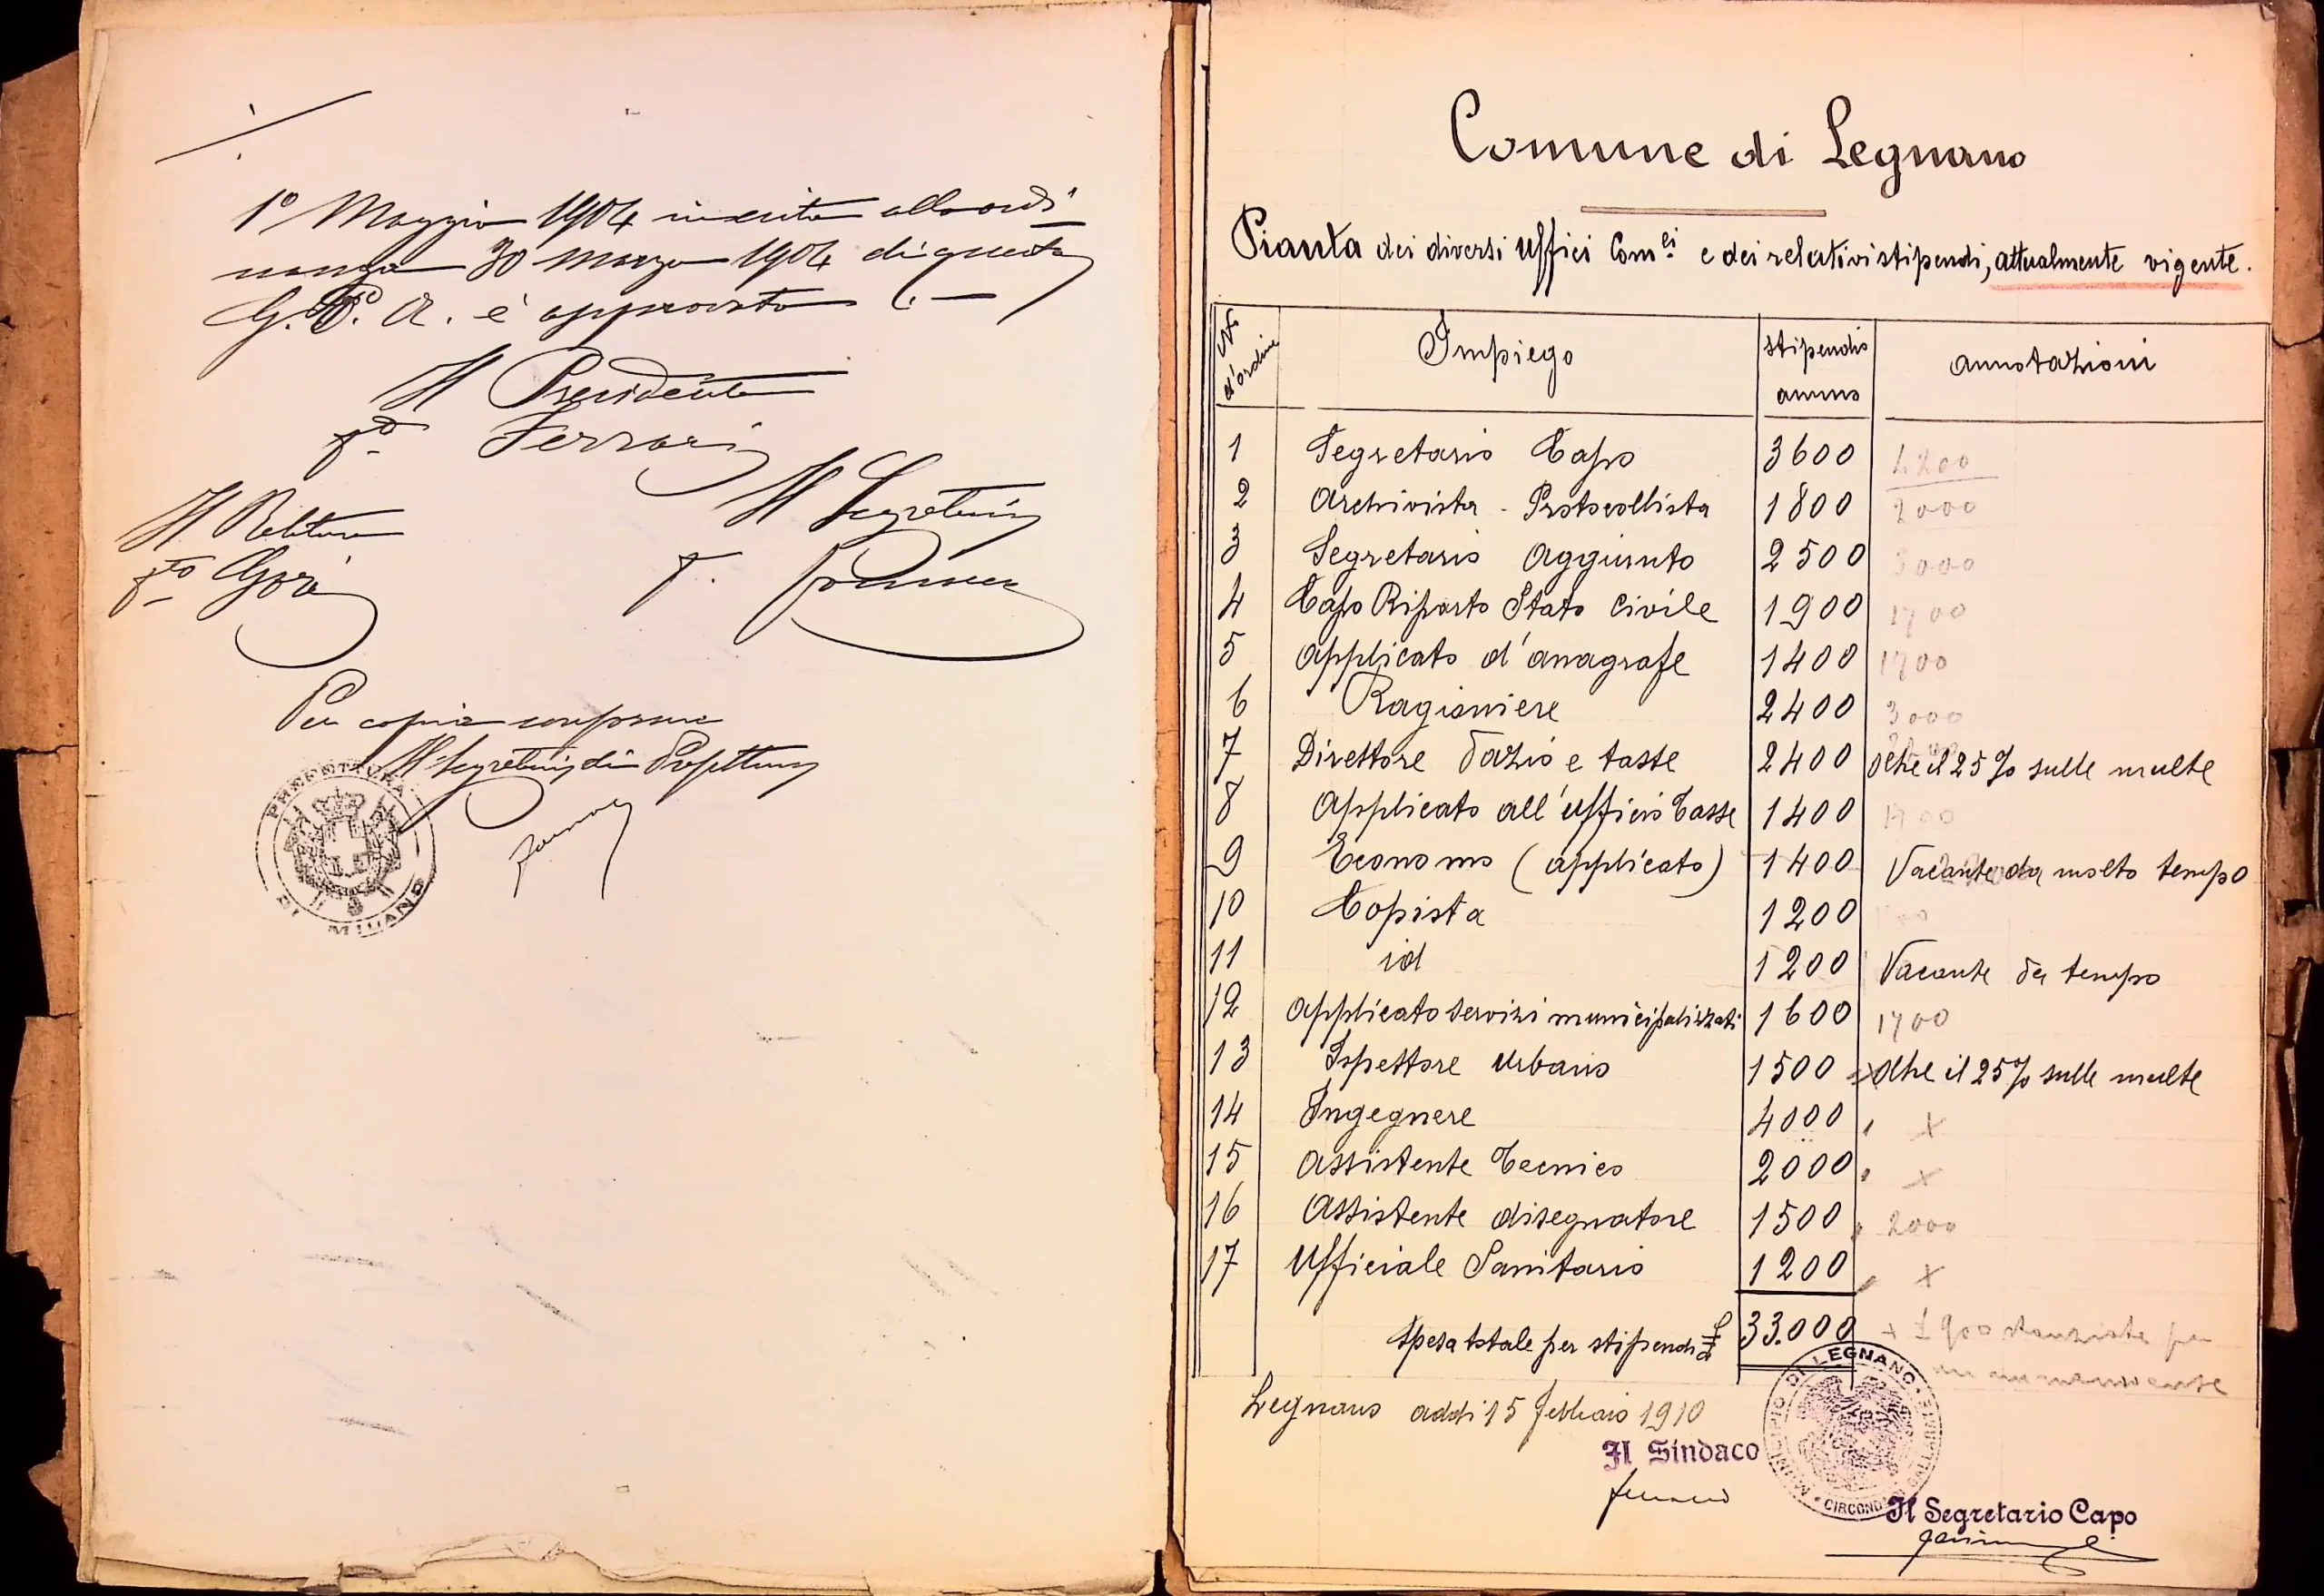 1° Maggio 1904 inserita alla ordi
nanza 30 marzo 1904 di questa
G. P. A. è approvata
Il Presidente
f° Ferrari
Il Relatore
fto Gori
Il Segretario
f.
Per copia conforme
Il Segretario di Prefettura
PREFETTURA
DI MILANO
Comune di Legnano
Pianta dei diversi uffici Com.li e dei relativi stipendi, attualmente vigente.
No d'ordine Impiego stipendio annuo annotazioni
1 Segretario Capo 3600 4200
2 Archivista - Protocollista 1800 2000
3 Segretario Aggiunto 2500 3000
4 Capo Riparto Stato Civile 1900 1700
5 Applicato d'anagrafe 1400 1700
6 Ragioniere 2400 3000
7 Direttore Dazio e tasse 2400 oltre il 25% sulle multe
8 Applicato all'ufficio Tasse 1400
9 Economo (applicato) 1400 Vacante da molto tempo
10 Copista 1200
11 id 1200 Vacante da tempo
12 Applicato servizi municipalizzati 1600 1700
13 Ispettore urbano 1500 oltre il 25% sulle multe
14 Ingegnere 4000 x
15 Assistente Tecnico 2000 x
16 Assistente disegnatore 1500 2000
17 Ufficiale Sanitario 1200 x
Spesa totale per stipendi £ 33.000 + £ 900 stanziate per
Legnano addì 15 febbraio 1910
Il Sindaco
MUNICIPIO DI LEGNANO
CIRCOND. DI GALLARATE
Il Segretario Capo